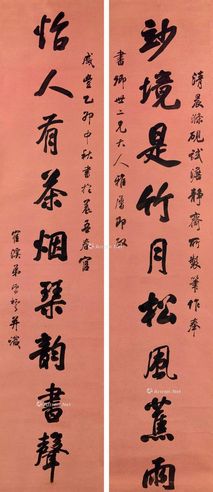 妙境是竹月松風蕉雨
清晨滌硯試澹靜齋所製筆作奉
書卿世二兄大人雅屬即政
怡人有茶烟琴韻書聲
咸豐乙卯中秋書於